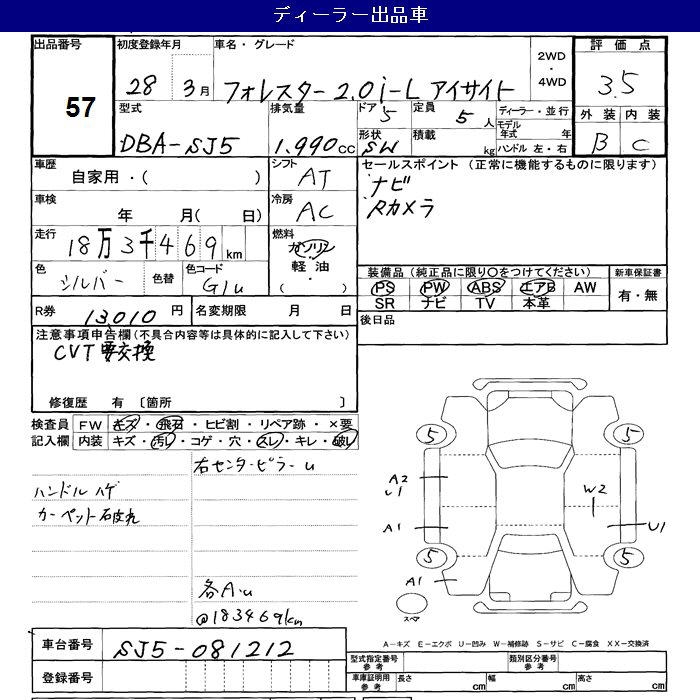 ディーラー出品車
出品番号 初度登録年月 車名・グレード 2WD・4WD 評価点
57 28年 3月 フォレスター 2.0i-L アイサイト 3.5
型式 排気量 ドア 5 定員 5人 ディーラー・並行 外装 内装
DBA-SJ5 1.990cc 形状 SW 積載 kg モデル年式 年 B C
ハンドル 左・右
車歴 シフト セールスポイント (正常に機能するものに限ります)
自家用・( ) AT ナビ
車検 冷房 Rカメラ
年 月( 日) AC
走行 燃料
18万3千469km ガソリン
軽油
・( )
色 シルバー 色替 色コード G1u
装備品 (純正品に限り○をつけてください) 新車保証書
PS PW ABS エアB AW 有・無
SR ナビ TV 本革
R券 13010円 名変期限 月 日 後日品
注意事項申告欄 (不具合内容等は具体的に記入して下さい)
CVT要交換
修復歴 有 〔箇所 〕
検査員 FW キズ・飛石・ヒビ割・リペア跡・×要
記入欄 内装 キズ・汚れ・コゲ・穴・スレ・キレ・破レ
右センターピラーu
ハンドルハゲ
カーペット破れ
各A.u
@183469km
5 5
A2
U1
W2
A1 U1
5 5
A1
スペア
A-キズ E-エクボ U-凹み W-補修跡 S-サビ C-腐食 XX-交換済
車台番号 SJ5-081212
型式指定番号 参考 類別区分番号 参考
登録番号 車庫証明用 参考 長さ cm 幅 cm 高さ cm